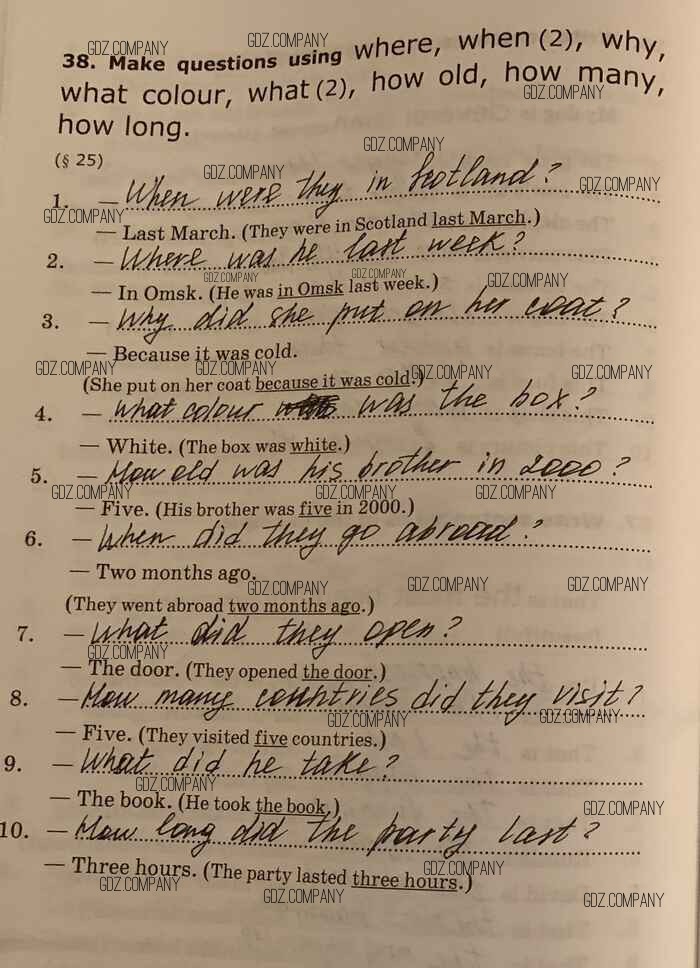 GDZ.COMPANY GDZ.COMPANY
38. Make questions using where, when (2), why,
what colour, what (2), how old, how many,
GDZ.COMPANY
how long.
GDZ.COMPANY
(§ 25)
GDZ.COMPANY GDZ.COMPANY
1. — When were they in Scotland?
GDZ.COMPANY
— Last March. (They were in Scotland last March.)
2. — Where was he last week?
GDZ.COMPANY GDZ.COMPANY GDZ.COMPANY
— In Omsk. (He was in Omsk last week.)
3. — Why did she put on her coat?
— Because it was cold.
GDZ.COMPANY GDZ.COMPANY GDZ.COMPANY GDZ.COMPANY
(She put on her coat because it was cold.)
4. — What colour was the box?
— White. (The box was white.)
5. — How old was his brother in 2000?
GDZ.COMPANY GDZ.COMPANY GDZ.COMPANY
— Five. (His brother was five in 2000.)
6. — When did they go abroad?
— Two months ago.
GDZ.COMPANY GDZ.COMPANY GDZ.COMPANY
(They went abroad two months ago.)
7. — What did they open?
GDZ.COMPANY
— The door. (They opened the door.)
8. — How many countries did they visit?
GDZ.COMPANY GDZ.COMPANY
— Five. (They visited five countries.)
9. — What did he take?
GDZ.COMPANY
— The book. (He took the book.)
GDZ.COMPANY
10. — How long did the party last?
— Three hours. (The party lasted three hours.)
GDZ.COMPANY GDZ.COMPANY GDZ.COMPANY GDZ.COMPANY